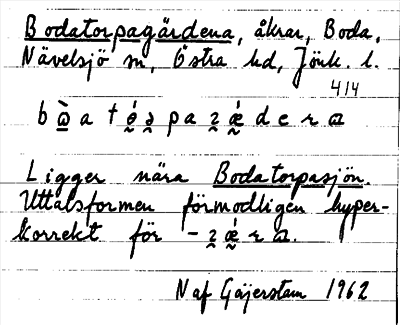 Bodatorpagärdena, åkrar, Boda,
Nävelsjö sn, Östra hd, Jönk. l.
414
Ligger nära Bodatorpasjön.
Uttalsformen förmodligen hyper-
korrekt för
N af Geijerstam 1962